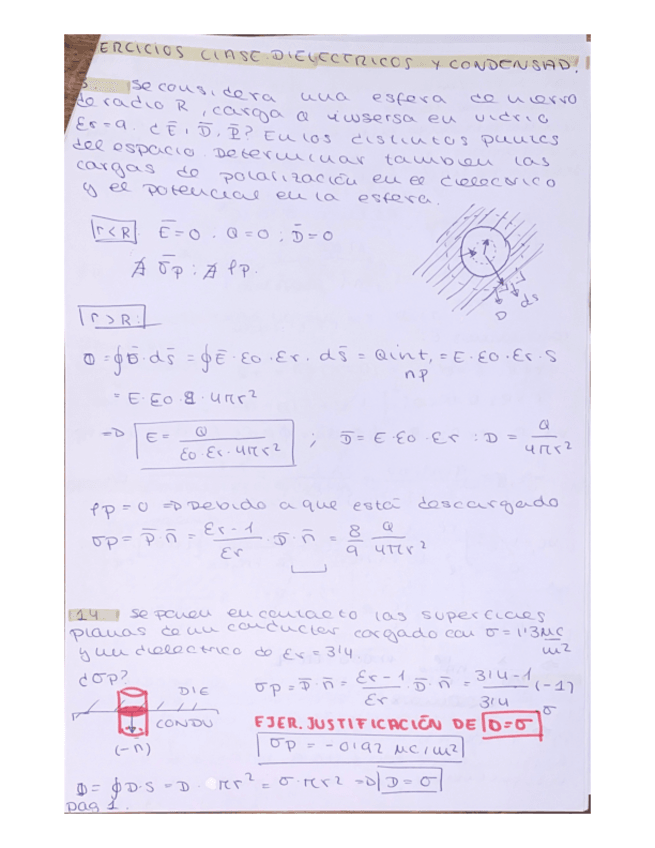 ERCICIOS CLASE. DIELECTRICOS Y CONDENSAD.
se considera una esfera de hierro
de radio R, carga Q inmersa en vidrio
Er=9. ¿Ē, D̄, P̄? En los distintos puntos
del espacio. Determinar tambien las
cargas de polarización en el dieléctrico
y el potencial en la esfera.
r<R. Ē=0. Q=0; D̄=0
∄ σp; ∄ ρp.
D ds
r>R:
Φ=∮D̄·ds̄ = ∮Ē·ε0·εr·ds̄ = Qint, = E·ε0·εr·S
np
= E·ε0·8·4πr²
=D E = Q/(ε0·εr·4πr²) ; D̄ = E·ε0·εr : D = Q/(4πr²)
ρp=0 =D Debido a que está descargado
σp = P̄·n̄ = (εr-1)/εr · D̄·n̄ = 8/9 Q/(4πr²)
14. Se ponen en contacto las superficies
planas de un conductor cargado con σ=1'3µC/m²
y un dielectrico de εr=3'4
¿σp?
DIE
CONDU
(-n̄)
σp = D̄·n̄ = (εr-1)/εr · D̄·n̄ = (3'4-1)/3'4 (-1) σ
EJER. JUSTIFICACIÓN DE D=σ
σp = -0'92 µC/m²
Φ= ∮D·S = D· πr² = σ·πr² =D D=σ
pag 1.